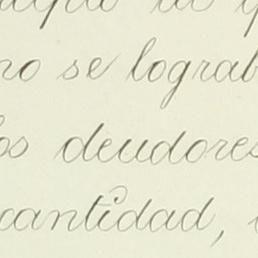 no se lograb
los deudores
cantidad,